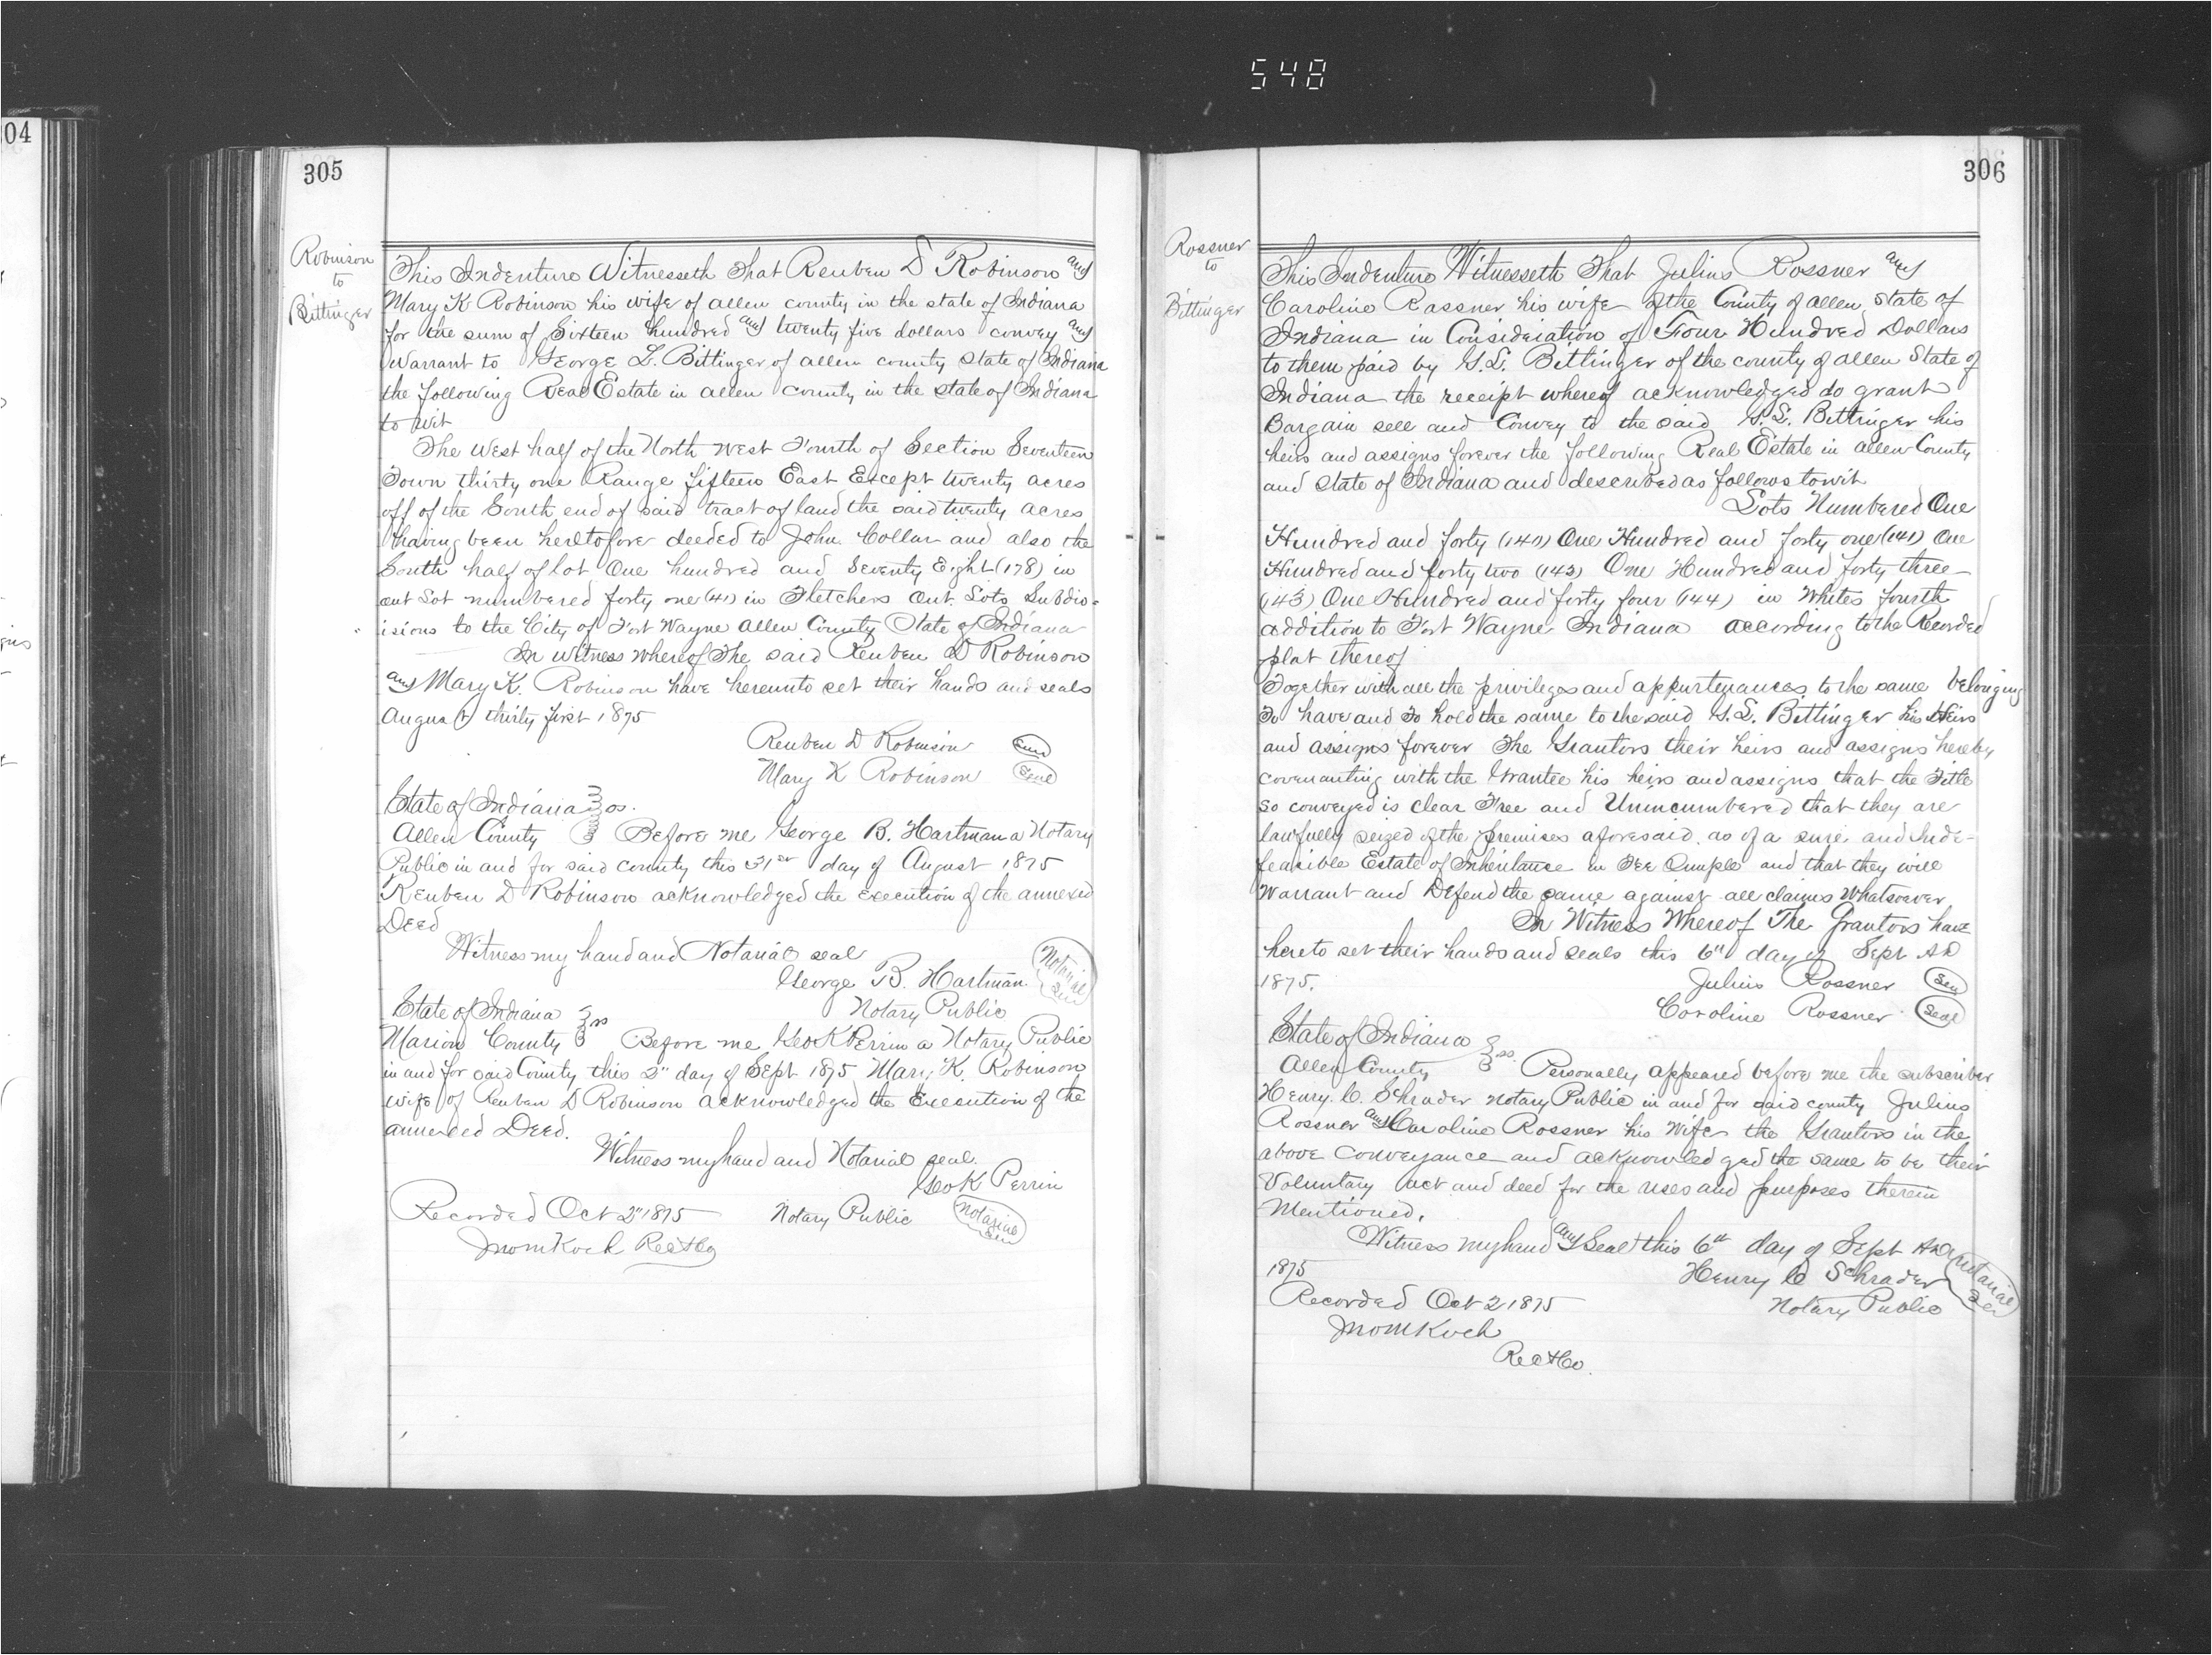 548
04
305
Robinson
to
Bittinger
This Indenture Witnesseth That Reuben D Robinson and
Mary K Robinson his wife of allen county in the state of Indiana
for the sum of Sixteen hundred and twenty five dollars convey and
Warrant to George L. Bittinger of allen county State of Indiana
the following Real Estate in allen county in the state of Indiana
to wit
The West half of the North West Fourth of Section Seventeen
Town thirty one Range fifteen East Except twenty acres
off of the South end of said tract of land the said twenty acres
having been heretofore deeded to John Collar and also the
South half of lot One hundred and Seventy Eight (178) in
out Lot numbered forty one (41) in Fletchers Out Lots Subdiv-
isions to the City of Fort Wayne Allen County State of Indiana
In witness whereof The said Reuben D Robinson
and Mary K. Robinson have hereunto set their hands and seals
August thirty first 1875
Reuben D Robinson Seal
Mary K Robinson Seal
State of Indiana
Allen County ss. Before me George B. Hartman a Notary
Public in and for said county this 31st day of August 1875
Reuben D Robinson acknowledged the execution of the annexed
Deed
Witness my hand and Notarial seal
George B. Hartman Notarial
Notary Public Seal
State of Indiana
Marion County ss Before me Geo K Perrin a Notary Public
in and for said County this 2" day of Sept 1875 Mary K. Robinson
wife of Reuben D Robinson acknowledged the Execution of the
annexed Deed.
Witness my hand and Notarial seal.
Geo K Perrin
Recorded Oct 2" 1875 Notary Public Notarial Seal
Jno M Koch
306
Rossner
to
Bittinger
This Indenture Witnesseth That Julius Rossner and
Caroline Rassner his wife of the County of allen State of
Indiana in Consideration of Four Hundred Dollars
to them paid by G.L. Bittinger of the county of allen State of
Indiana the receipt whereof acknowledged do grant
Bargain sell and Convey to the said G.L. Bittinger his
heirs and assigns forever the following Real Estate in allen County
and State of Indiana and described as follows towit
Lots Numbered One
Hundred and forty (140) One Hundred and forty one (141) One
Hundred and forty two (142) One Hundred and forty three
(143) One Hundred and forty four (144) in Whites fourth
addition to Fort Wayne Indiana according to the Recorded
plat thereof
Together with all the privileges and appurtenances to the same belonging
To have and To hold the same to the said G.L. Bittinger his Heirs
and assigns forever The Grantors their heirs and assigns hereby
covenanting with the Grantee his heirs and assigns that the Title
so conveyed is clear Free and Unincumbered that they are
lawfully seized of the premises aforesaid as of a sure and Inde-
feasible Estate of Inheritance in Fee Simple and that they will
Warrant and Defend the same against all claims Whatsoever
In Witness Whereof The Grantors have
hereto set their hands and seals this 6th day of Sept AD
1875. Julius Rossner Seal
Caroline Rossner Seal
State of Indiana
Allen County ss. Personally appeared before me the subscriber
Henry C. Schrader Notary Public in and for said county Julius
Rossner and Caroline Rossner his Wife the Grantors in the
above conveyance and acknowledged the same to be their
Voluntary act and deed for the uses and purposes therein
Mentioned.
Witness my hand and Seal this 6th day of Sept AD
1875 Henry C Schrader Notarial
Recorded Oct 2 1875 Notary Public Seal
Jno M Koch